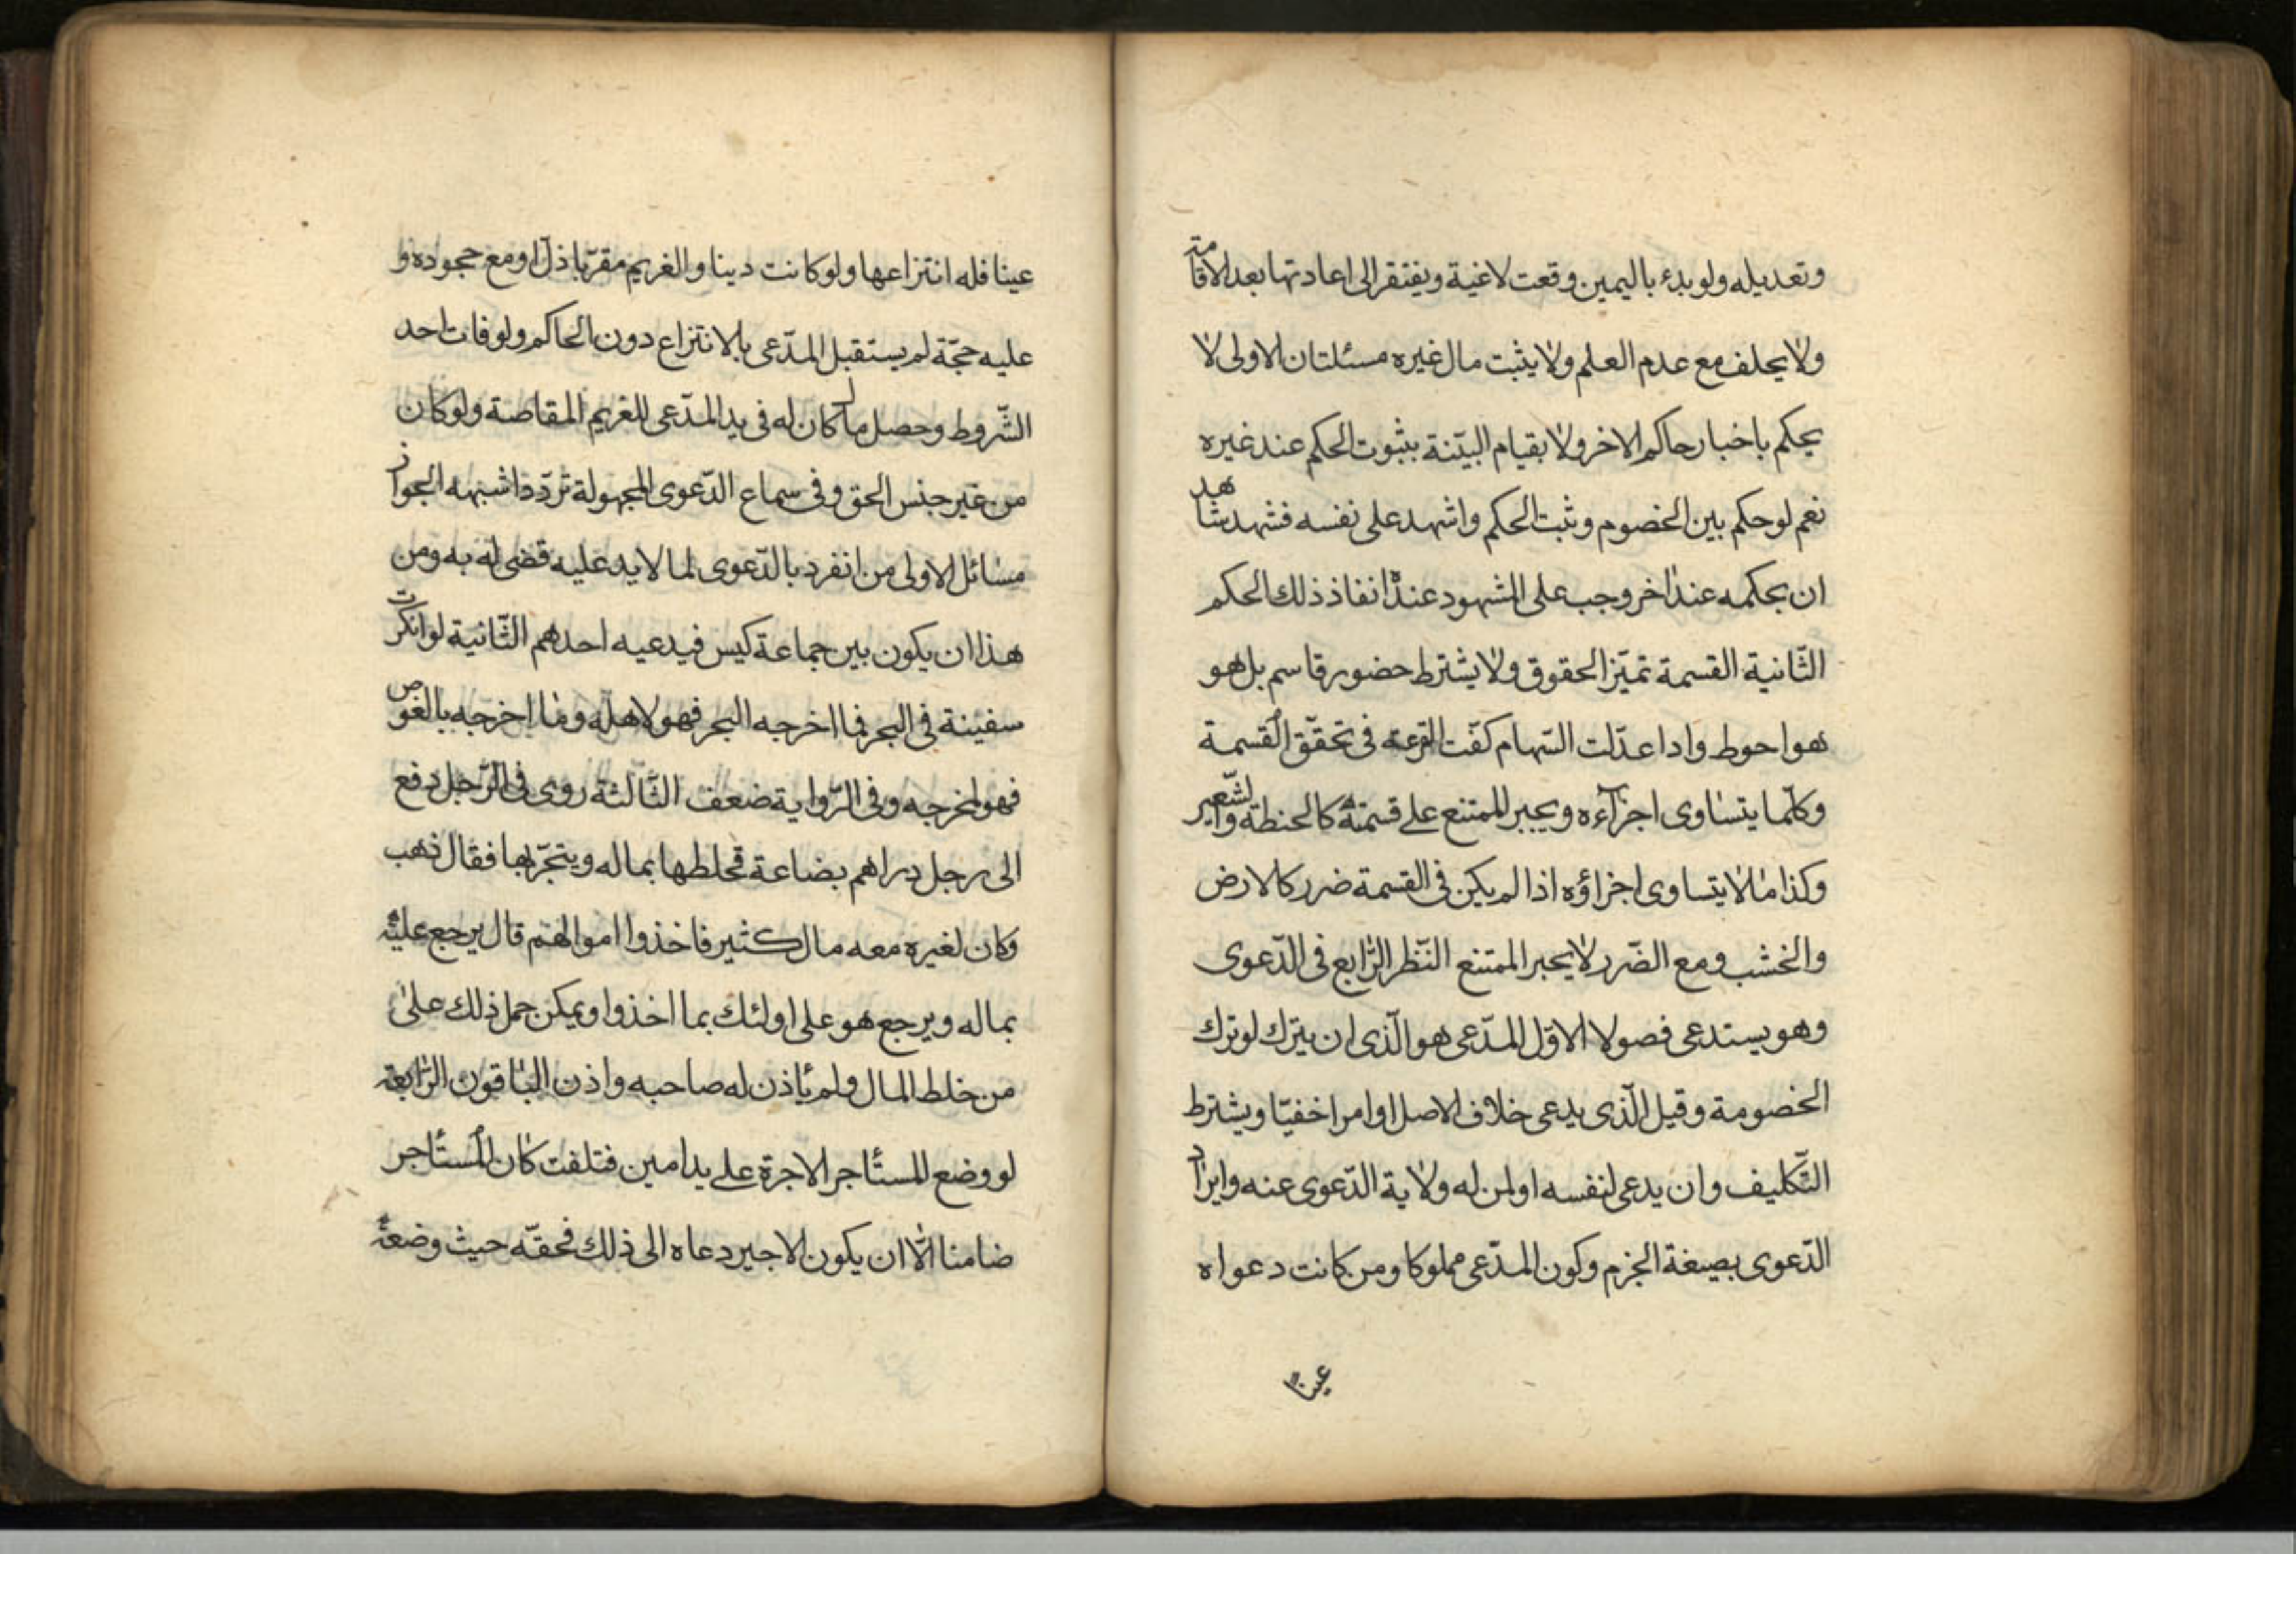 وتعديله ولو بدء باليمين وقعت لاغية ويفتقر الى اعادتها بعد الاقامة
ولا يحلف مع عدم العلم ولا يثبت مال غيره مسئلتان الاولى لا
يحكم باخبار حاكم الاخر ولا بقيام البيّنة بثبوت الحكم عند غيره
نعم لو حكم بين الخصوم وثبت الحكم واشهد على نفسه فشهد شاهد
ان بحكمه عند اخر وجب على المشهود عنده انفاذ ذلك الحكم
الثّانية القسمة تميّز الحقوق ولا يشترط حضور قاسم بل هو
هو احوط واذا عدّلت السّهام كفت القرعة فى تحقّق القسمة
وكلّما يتساوى اجزآءه ويجبر الممتنع على قسمته كالحنطة والشّعير
وكذا ما لا يتساوى اجزاؤه اذا لم يكن فى القسمة ضرر كالارض
والخشب ومع الضّرر لا يجبر الممتنع النّظر الرّابع فى الدّعوى
وهو يستدعى فصولا الاوّل المدّعى هو الّذى ان يترك لو ترك
الخصومة وقيل الّذى يدعى خلاف الاصل او امرا خفيّا ويشترط
التّكليف وان يدعى لنفسه او لمن له ولاية الدّعوى عنه وايراد
الدّعوى بصيغة الجزم وكون المدّعى مملوكا ومن كانت دعواه
عينا
عينا فله انتزاعها ولو كانت دينا والغريم مقرّ باذل او مع جحوده و
عليه حجّة لم يستقبل المدّعى بالانتزاع دون الحاكم ولو فات احد
الشّروط وحصل ما كان له فى يد المدّعى للغريم المقاصة ولو كان
من غير جنس الحق وفى سماع الدّعوى المجهولة تردّد اشبهه الجواز
مسائل الاولى من انفرد بالدّعوى لما لا يد عليه قضى له به ومن
هذا ان يكون بين جماعة كيس فيدعيه احدهم الثّانية لو انكرت
سفينة فى البحر فما اخرجه البحر فهو لاهله وما اخرجه بالغوص
فهو لمخرجه وفى الرّواية ضعف الثّالثة روى فى الرّجل دفع
الى رجل دراهم بضاعة تخلطها بماله ويتجّر بها فقال ذهب
وكان لغيره معه مال كثير فاخذوا اموالهم قال يرجع عليه
بماله ويرجع هو على اولئك بما اخذوا ويمكن حمل ذلك على
من خلط المال ولم يأذن له صاحبه واذن الباقون الرّابعة
لو وضع المستأجر الاجرة على يد امين فتلفت كان المستأجر
ضامنا الّا ان يكون الاجير دعاه الى ذلك فحقّه حيث وضعه